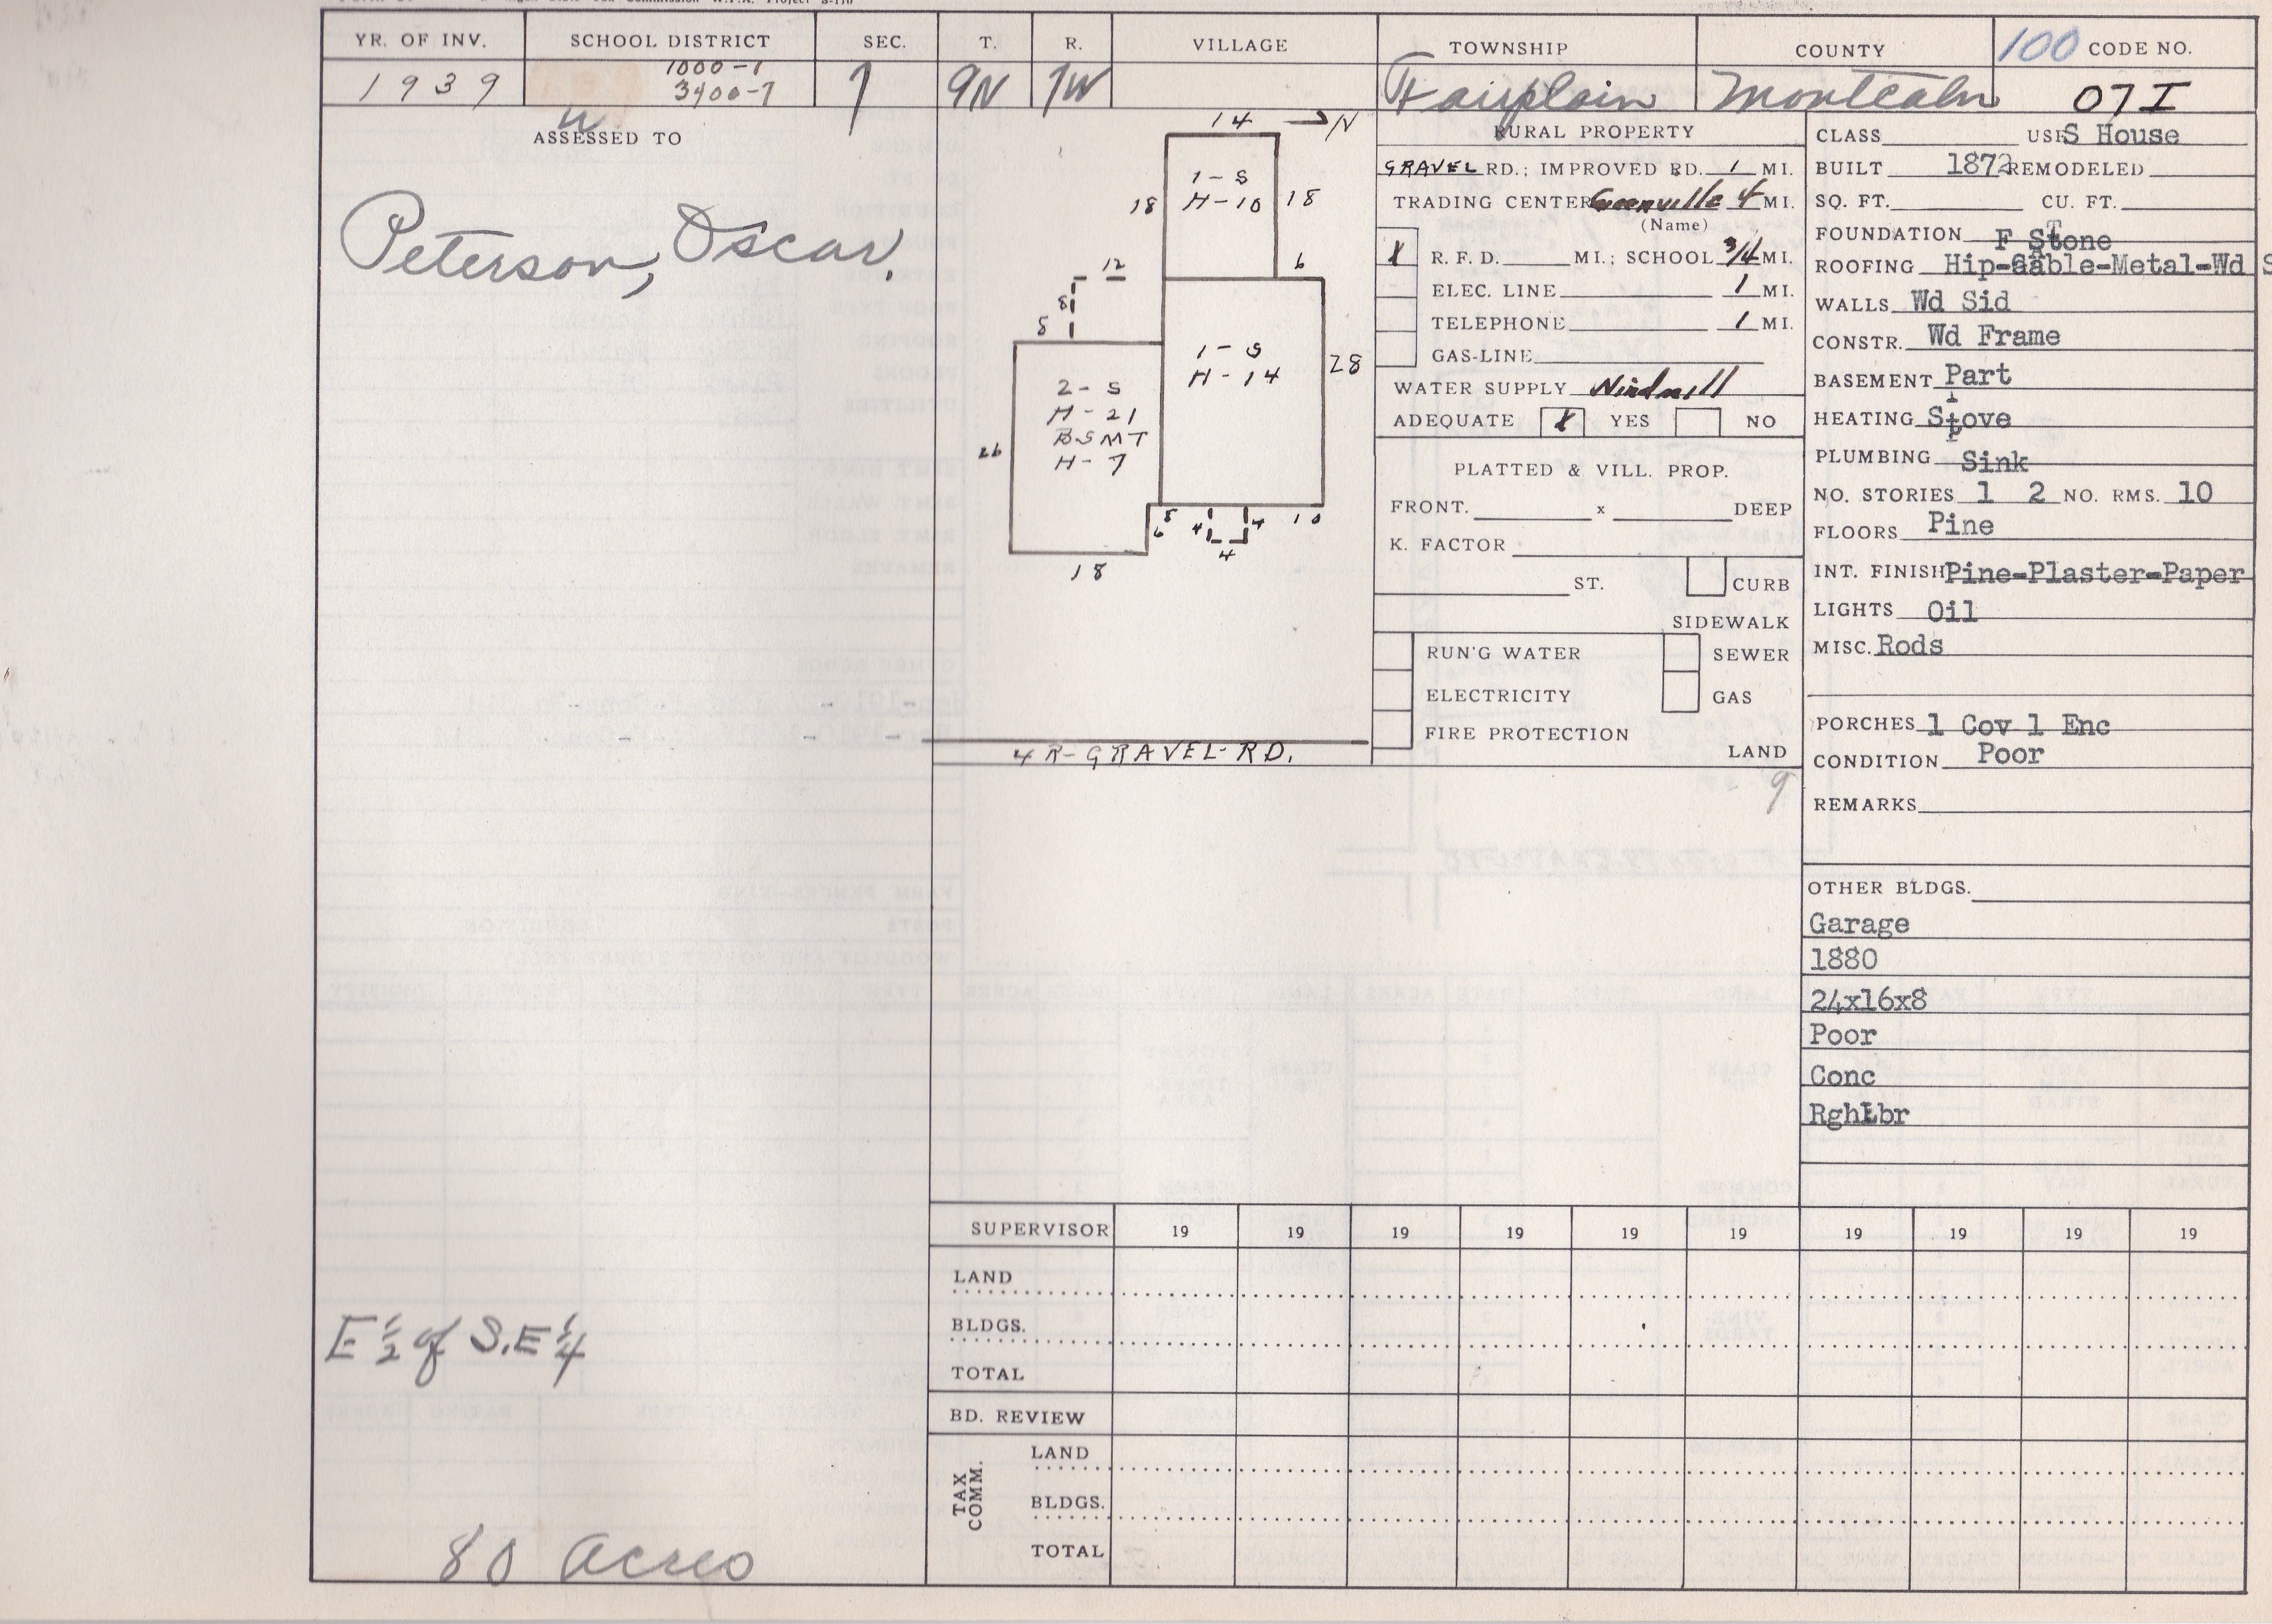 Commission W.P.A. Project
YR. OF INV. SCHOOL DISTRICT SEC. T. R. VILLAGE TOWNSHIP COUNTY 100 CODE NO.
1939 1000-1 7 9N 7W Fairplain Montcalm 07I
3400-7
ASSESSED TO
Peterson, Oscar.
E 1/2 of S.E 1/4
80 Acres
14 N
1-S
H-10
18 18
12 6
8
5
1-S
H-14
28
2-S
H-21
BSMT
H-7
26
5 6 4 4 10
4
18
4 R-GRAVEL-RD.
RURAL PROPERTY
GRAVEL RD.; IMPROVED RD. 1 MI.
TRADING CENTER Greenville 4 MI.
(Name)
X R.F.D. MI.; SCHOOL 3/4 MI.
ELEC. LINE 1 MI.
TELEPHONE 1 MI.
GAS-LINE
WATER SUPPLY Windmill
ADEQUATE X YES NO
PLATTED & VILL. PROP.
FRONT. x DEEP
K. FACTOR
ST. CURB
SIDEWALK
RUN'G WATER SEWER
ELECTRICITY GAS
FIRE PROTECTION
LAND
9
CLASS USE S House
BUILT 1872 REMODELED
SQ. FT. CU. FT.
FOUNDATION F Stone
ROOFING Hip-Gable-Metal-Wd S
WALLS Wd Sid
CONSTR. Wd Frame
BASEMENT Part
HEATING Stove
PLUMBING Sink
NO. STORIES 1 2 NO. RMS. 10
FLOORS Pine
INT. FINISH Pine-Plaster-Paper
LIGHTS Oil
MISC. Rods
PORCHES 1 Cov 1 Enc
CONDITION Poor
REMARKS
OTHER BLDGS.
Garage
1880
24x16x8
Poor
Conc
RghLbr
SUPERVISOR 19 19 19 19 19 19 19 19 19 19
LAND
BLDGS.
TOTAL
BD. REVIEW
TAX COMM.
LAND
BLDGS.
TOTAL